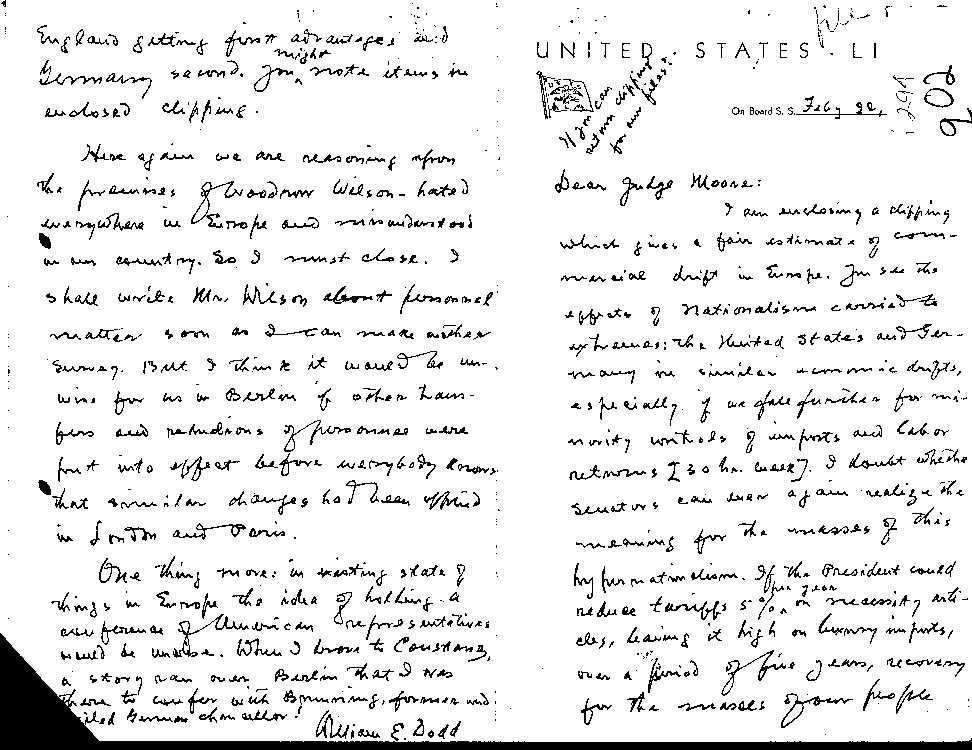 file
UNITED · STATES · LI
If you can
return clipping
for our files?
On Board S. S. Feby 22,
902
Dear Judge Moore:
I am enclosing a clipping
which gives a fair estimate of com-
mercial drift in Europe. You see the
effects of Nationalism carried to
extremes: the United States and Ger-
many in similar economic drifts,
especially if we fall further for mi-
nority controls of imports and labor
returns [30 hr. week]. I doubt whether
Senators can ever again realize the
meaning for the masses of this
hypernationalism. If the President could
reduce tariffs 5% per year on necessity arti-
cles, leaving it high on luxury imports,
over a period of five years, recovery
for the masses of our people
England getting first advantages and
Germany second. You might note items in
enclosed clipping.
Here again we are reasoning upon
the premises of Woodrow Wilson - hated
everywhere in Europe and misunderstood
in our country. So I must close. I
shall write Mr. Wilson about personnel
matter soon as I can make another
survey. But I think it would be un-
wise for us in Berlin if other trans-
fers and reductions of personnel were
put into effect before everybody knows
that similar changes had been applied
in London and Paris.
One thing more: in existing state of
things in Europe the idea of holding a
conference of American representatives
would be unwise. When I drove to Constanz,
a story ran over Berlin that I was
there to confer with Brüning, former and
exiled German chancellor!
William E. Dodd